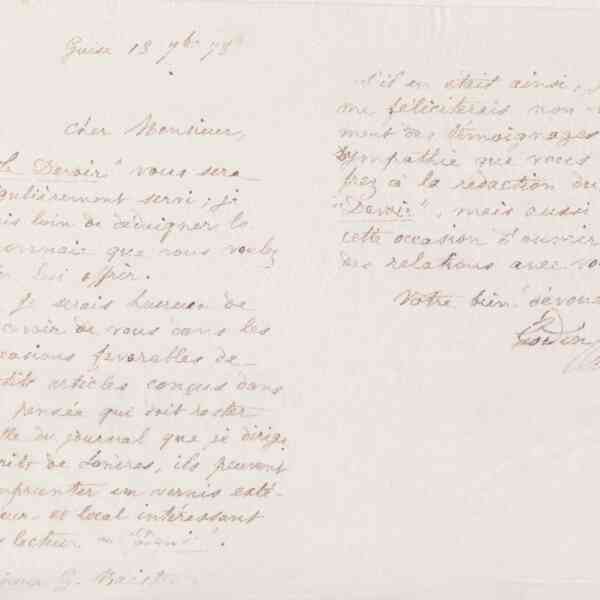 Guise 13 7bre 78
Cher Monsieur,
Le Devoir" vous sera
gulièrement servi; je
is loin de dédaigner la
monnaie que vous voulez
lui offrir.
Je serais heureux de
cevoir de vous dans les
casions favorables de
tits articles conçus dans
pensée qui doit rester
lle du journal que je dirige
crits de Londres, ils peuvent
mprunter un vernis exté-
ieur et local intéressant
lecteur "Devoir".
G.
s'il en était ainsi, je
me féliciterais non
ment des témoignages
sympathie que vous
frez à la rédaction du
"Devoir", mais aussi
cette occasion d'ouvrir
des relations avec vo
Votre bien dévoué
Godin